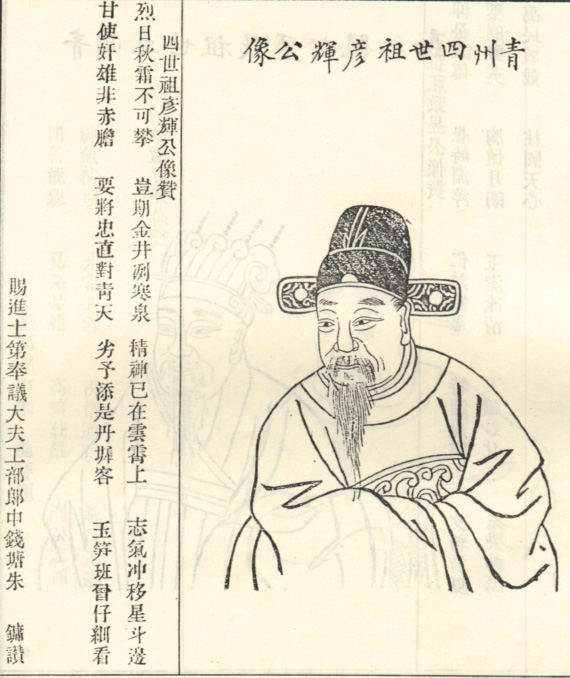 青州四世祖彦輝公像
四世祖彦輝公像贊
烈日秋霜不可攀 豈期金井冽寒泉 精神已在雲霄上 志氣冲移星斗邊
甘使奸雄非赤膽 要將忠直對青天 劣予添是丹墀客 玉笋班曾仔細看
賜進士第奉議大夫工部郎中錢塘朱 鏞讃